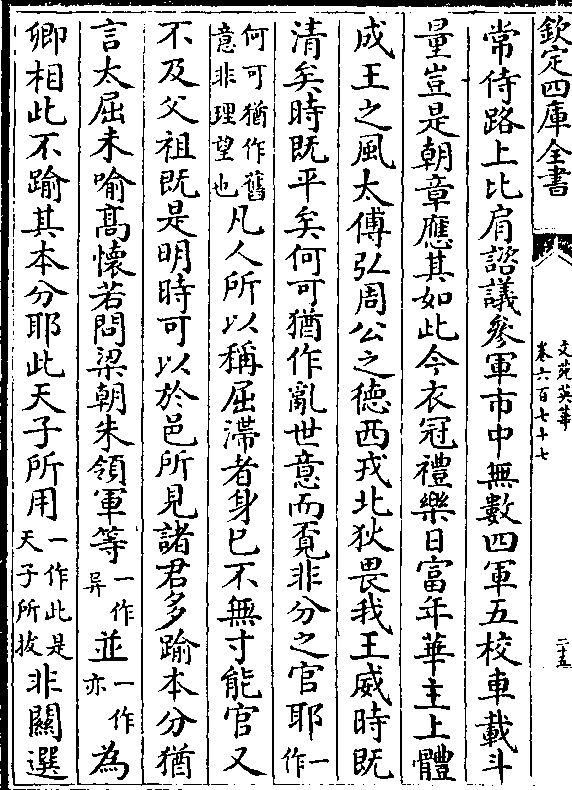 欽定四庫全書
文苑英華
卷六百七十七
二十五
常侍路上比肩諮議參軍市中無數四軍五校車載斗
量豈是朝章應其如此今衣冠禮樂日富年華主上體
成王之風太傅弘周公之德西戎北狄畏我王威時既
清矣時既平矣何可猶作亂世意而覓非分之官耶一作
何可猶作舊
意非理望也凡人所以稱屈滯者身已不無寸能官又
不及父祖既是明時可以於邑所見諸君多踰本分猶
言太屈未喻髙懷若問梁朝朱領軍等一作异並一作亦為
卿相此不踰其本分耶此天子所用一作此是天子所拔非關選